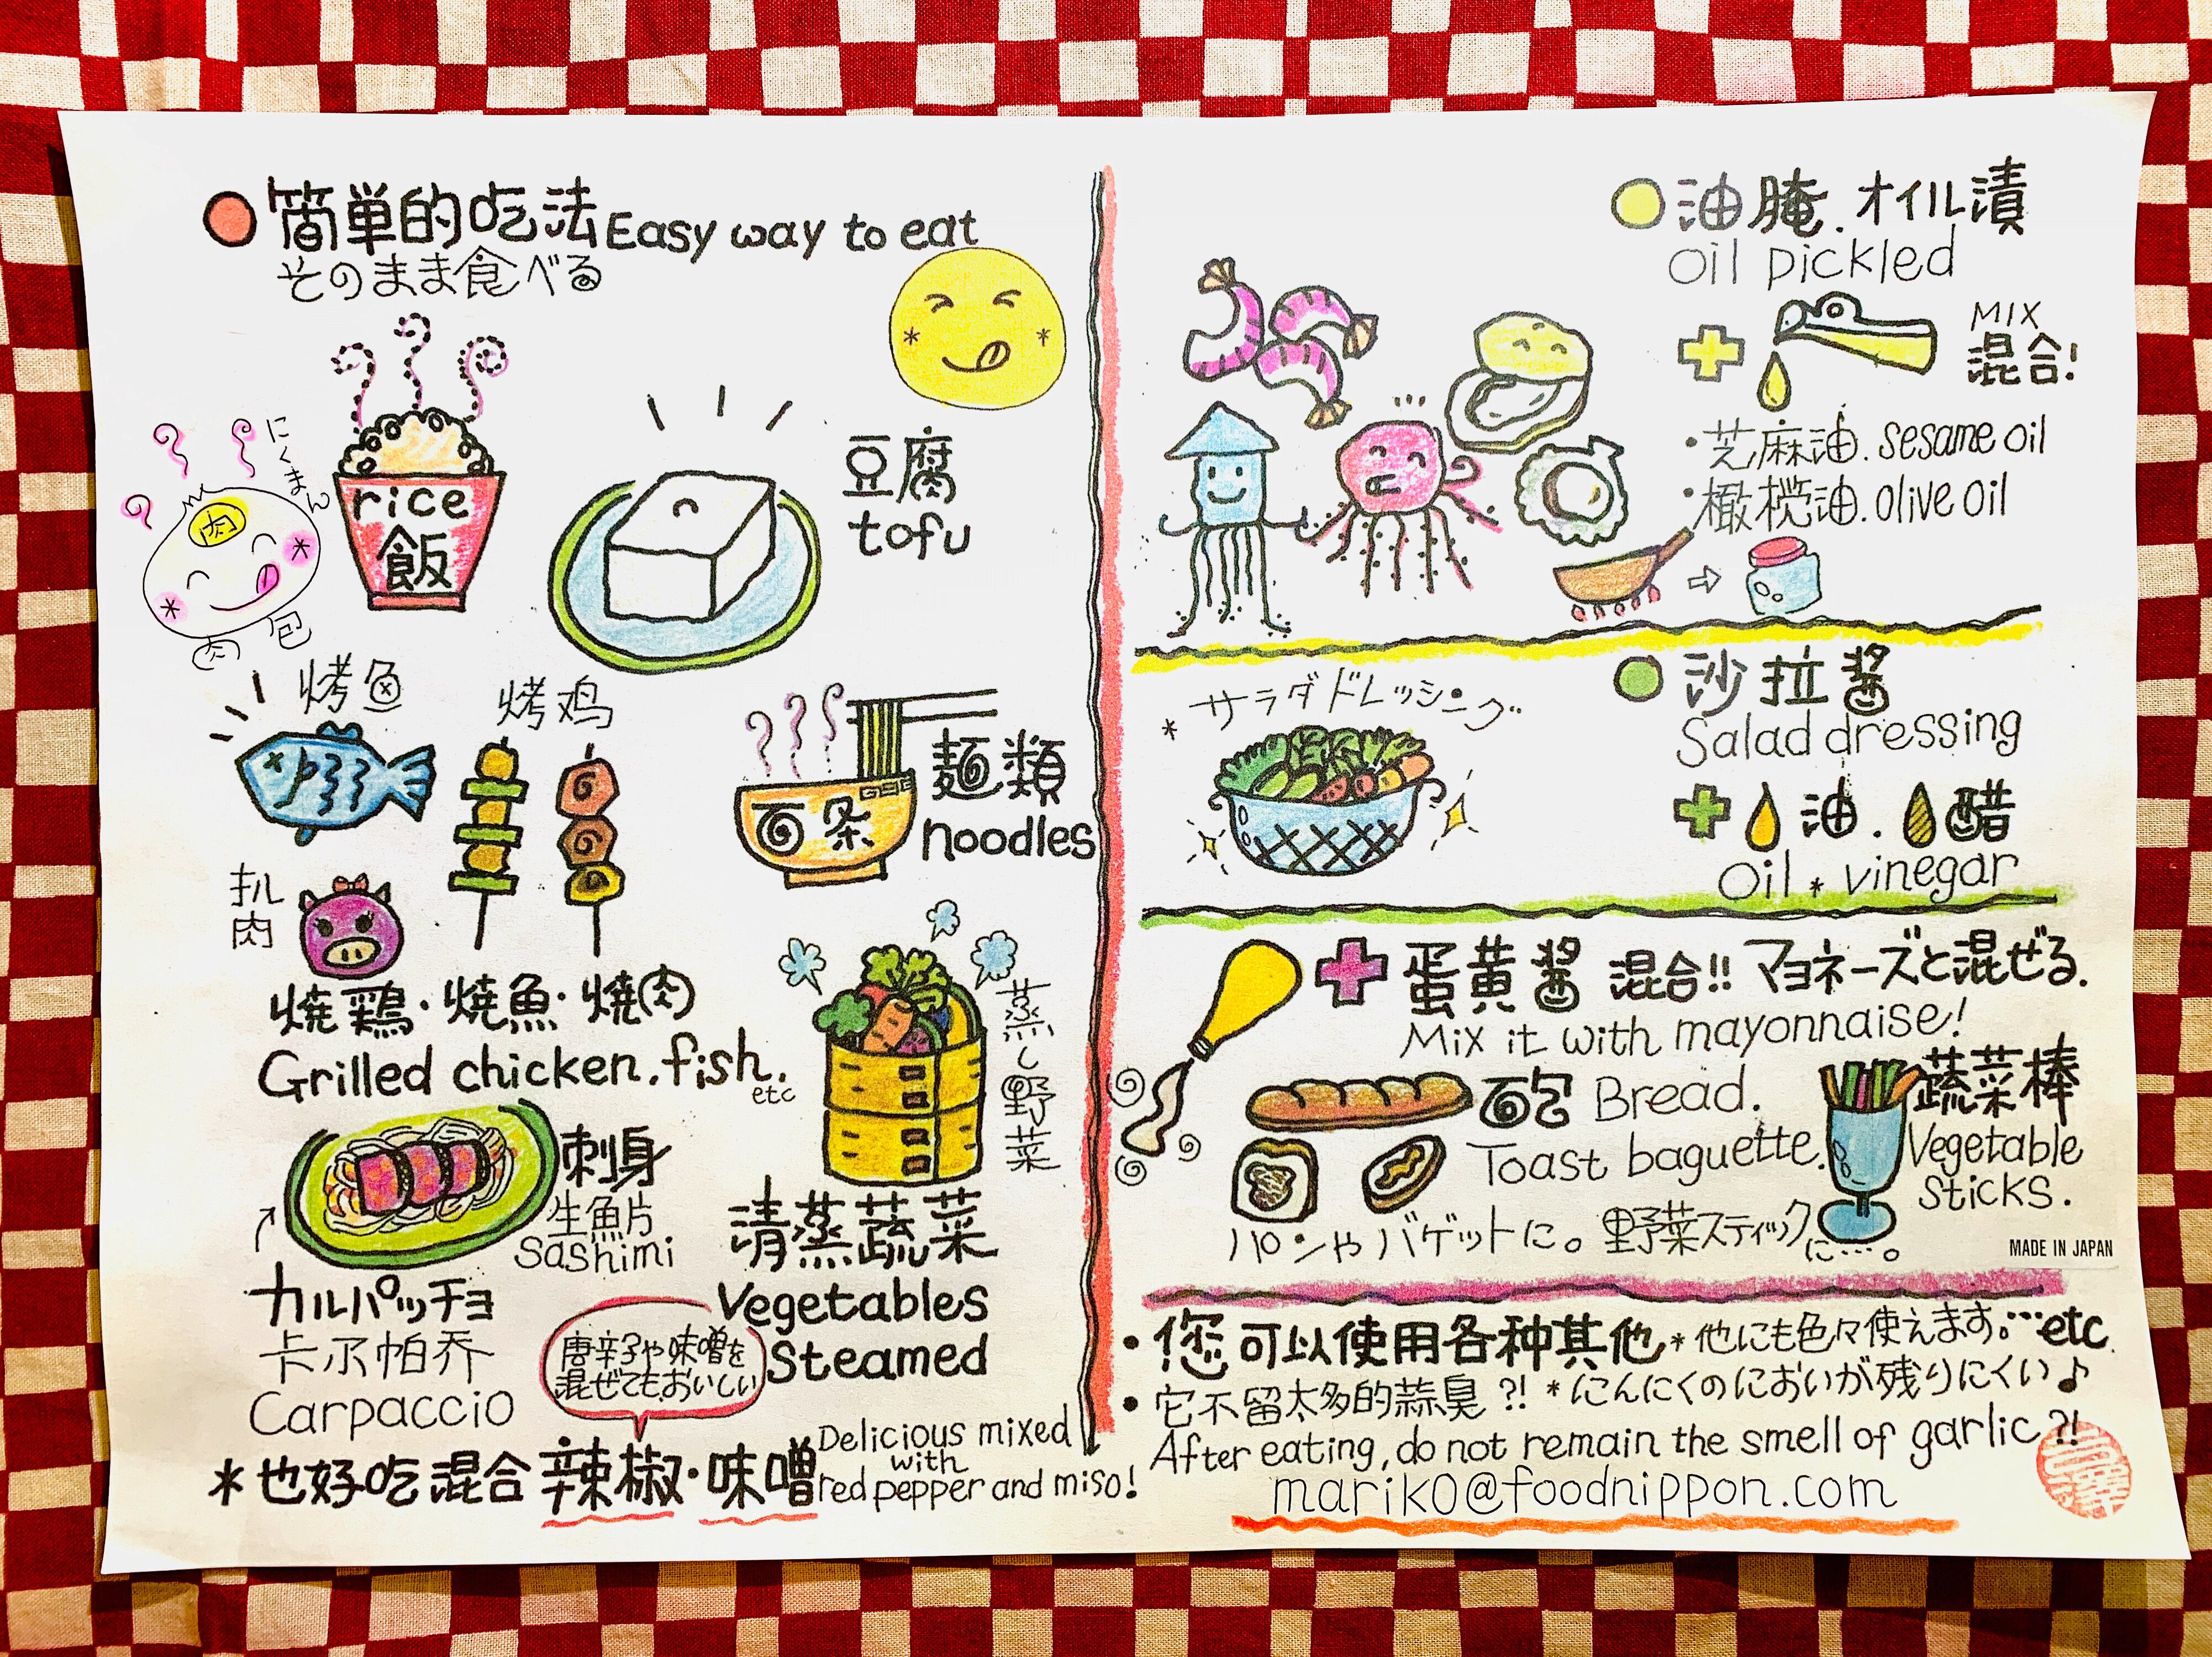 簡単的吃法 Easy way to eat
そのまま食べる
にくまん
肉
肉包
rice
飯
豆腐
tofu
烤鱼
烤鸡
面条
麺類
noodles
扒肉
焼鶏・焼魚・焼肉
Grilled chicken. fish. etc
蒸し野菜
刺身
生魚片
Sashimi
清蒸蔬菜
Vegetables
Steamed
カルパッチョ
卡尔帕乔
Carpaccio
唐辛子や味噌を
混ぜてもおいしい
*也好吃混合辣椒・味噌
Delicious mixed
with
red pepper and miso!
油腌.オイル漬
oil pickled
MIX
混合!
・芝麻油.sesame oil
・橄榄油.olive oil
*サラダドレッシング
沙拉酱
Salad dressing
油.醋
Oil * vinegar
蛋黄酱 混合!! マヨネーズと混ぜる.
Mix it with mayonnaise!
面包 Bread.
Toast baguette.
蔬菜棒
Vegetable
Sticks.
パンやバゲットに。野菜スティックに…。
MADE IN JAPAN
・您可以使用各种其他*他にも色々使えます。…etc
・它不留太多的蒜臭?!*にんにくのにおいが残りにくい♪
After eating, do not remain the smell of garlic?!
mariko@foodnippon.com